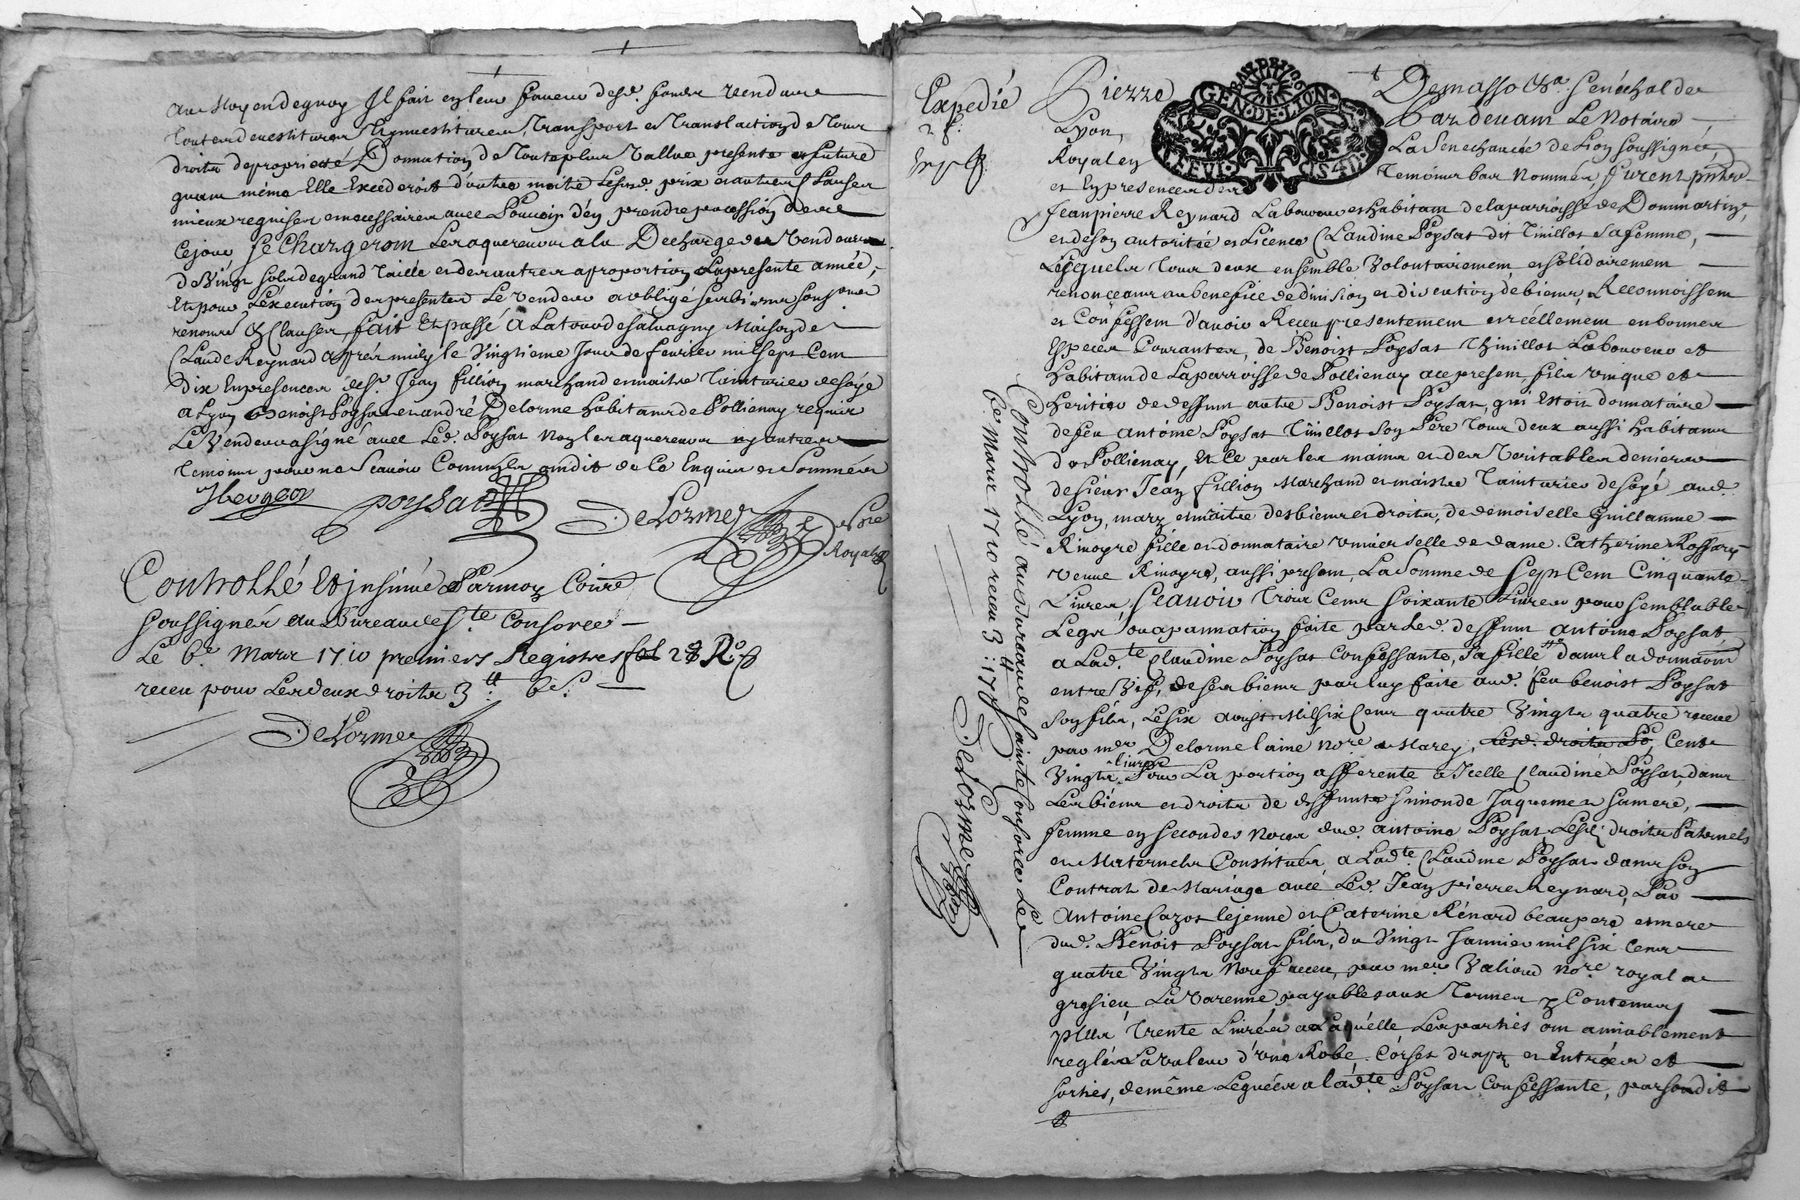 au moyen dequoy Il fait en leur faveur desd. fonds vendus
toute devestiture Investiture, transport et translaction de tous
droits de proprieté Donnation de toute plus vallue presente et future
quand même Elle Excederoit d'autre moitié lesusd. prix et autres clauses
mieux requises et necessaires avec Pouvoir d'en prendre possession des
ce jour se chargeront les aquereurs a la Decharge du Vendeur
de Vingt sols de grand Taille et des autres a proportion la presente année,
Et pour L'execution des presentes Le vendeur a obligé ses biens
renonce & Clauses, fait Et passé A La tour de salvagny Maison de
Claude Reynard aprés midy le Vingtieme Jour de fevrier mil sept Cent
Dix En presences de sr Jean fillion marchand et maitre Tainturier de soye
a Lyon Benoist Poysat et andré Delorme habitants de Pollienay requis
Le Vendeur a signé avec Led. Poysat Non les aquereurs ny autres
temoins pour ne sçavoir Comme ils ont dit de Ce Enquis et Sommés
poysat
Delorme
Royal
Controllé Et insinué Par moy Commis
soussigné au Bureau de ste Consorce
Le 6e. Mars 1710 premiers Registres fol 28 Ro
receu pour Les deux droits 3tt 6s.
Delorme
Expedié
Pierre
Demasso Senechal de
Lyon,
Par devant Le Notaire
Royal en
La Senechaucée de Lion soussigné,
et En presence des
Temoins bas Nommés, furent
GEN. DE LION
Jean pierre Reynard Laboureur et habitant de la parroisse de Dommartin,
et de son autorité et Licence Claudine Poysat dit Tinillot sa femme,
Lesquels tous deux ensemble Volontairement et solidairement
renonceant au benefice de division et discution de biens, Reconnoissent
et Confessent d'avoir Receu presentement et réellement en bonnes
Especes Courantes, de Benoist Poysat Thinillot Laboureur et
habitant de La parroisse de Pollienay ace present, fils unique et
heritier de deffunt autre Benoist Poysat, qui Estoit donnataire
de feu antoine Poysat Tinillot son Pere tous deux aussi habitants
de Pollienay, Et Ce par les mains et des Veritables deniers
de sieur Jean fillion Marchand et maistre Tainturier de soye aud.
Lyon, mary et maitre des biens et droits, de demoiselle Guillaume
Rivoyre fille et donnataire universelle de dame Catherine Rossary
veuve Rivoyre, aussi present, La Somme de Sept Cent Cinquante
Livres sçavoir Trois Cents Soixante Livres pour semblable
Legs ou apannation faite par Led. deffunt antoine Poysat
a Lad.te Claudine Poysat Confessante, sa fille dans la donnation
entre Vifs, de ses biens par luy faite aud. feu benoist Poysat
son fils, Le six aoust Mil six Cents quatre Vingts quatre receue
par me Delorme laine Nore a Marcy, Cent
Vingts livres Pour La portion afferente a Icelle Claudine Poysat dans
Les biens et droits de deffunte simonde Jaquemet sa mere,
femme en secondes Noces dud. antoine Poysat Lesd. droits Paternels
et Maternels Constitués a Lad.te Claudine Poysat dans son
Contrat de Mariage avec Led. Jean pierre Reynard, Par
Antoine Cazot lejeune et Caterine Rénard beau pere et mere
dud. Benoit Poysat fils, du Vingt Janvier mil six Cents
quatre Vingts Neuf receu, par me Valious Nore royal a
gresieu La Varenne payables aux Termes y Contenus
Plus Trente Livres a Laquelle Les parties ont amiablement
reglés La valeur d'une Robe Corset draps et Entrées et
sorties, de même Leguées a lad.te Poysat Confessante, par sondit
Controllé au bureau de sainte Consorce Le
6e mars 1710 receu 3
Delorme